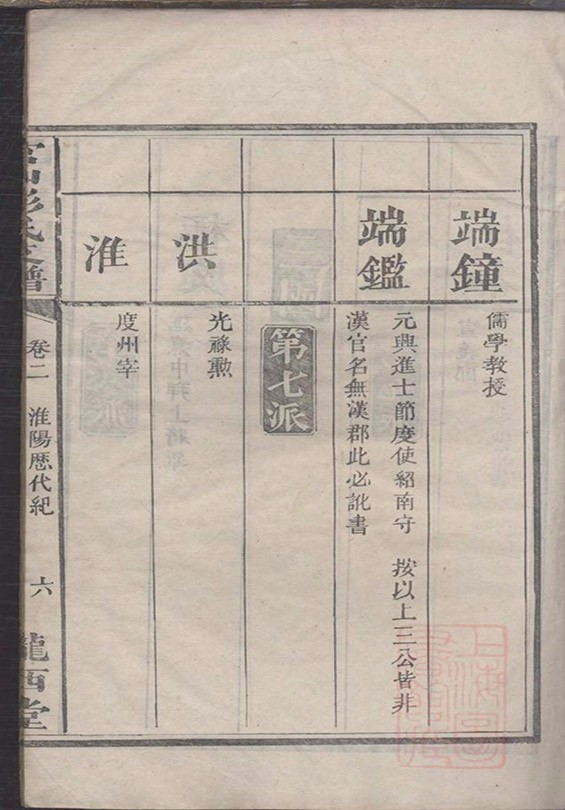 端鐘
儒學教授
端鑑
元興進士節度使紹南守　按以上三公皆非
漢官名無漢郡此必訛書
第七派
洪
光祿勲
淮
度州宰
彭氏支譜
卷二
淮陽歴代紀
六
隴西堂